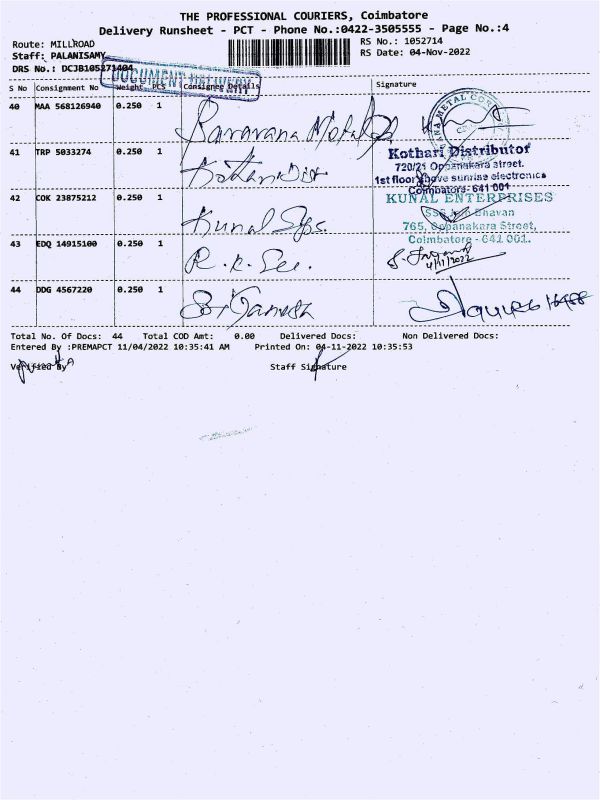 THE PROFESSIONAL COURIERS, Coimbatore
Delivery Runsheet - PCT - Phone No.:0422-3505555 - Page No.:4
Route: MILLROAD RS No.: 1052714
Staff: PALANISAMY RS Date: 04-Nov-2022
DRS No.: DCJB105271404
DOCUMENT DELIVERY
S No Consignment No Weight PCS Consignee Details Signature
40 MAA 568126940 0.250 1 Saravana Metal
41 TRP 5033274 0.250 1 Kothari Dist
Kothari Distributor
720/21 Oppanakara street.
1st floor above sunrise electronics
Coimbatore-641 001
42 COK 23875212 0.250 1 Kunal Sys.
KUNAL ENTERPRISES
Bhavan
765, Oppanakara Street,
Coimbatore - 641 001.
43 EDQ 14915100 0.250 1 R.K. See.
4/11/2022
44 DDG 4567220 0.250 1 Sri Ganesh
Total No. Of Docs: 44 Total COD Amt: 0.00 Delivered Docs: Non Delivered Docs:
Entered By :PREMAPCT 11/04/2022 10:35:41 AM Printed On: 04-11-2022 10:35:53
Verified By Staff Signature